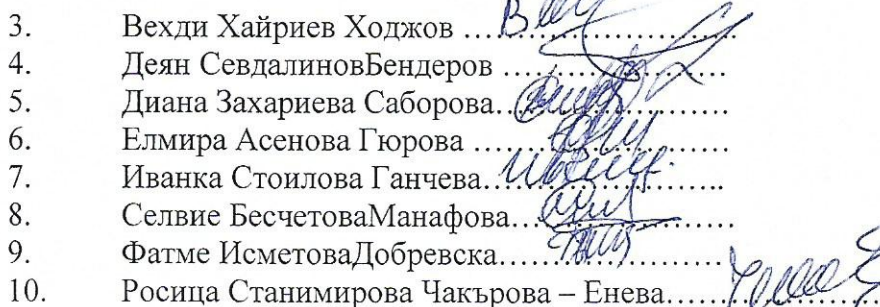 3. Вехди Хайриев Ходжов ……………………
4. Деян СевдалиновБендеров …………………
5. Диана Захариева Саборова…………………
6. Елмира Асенова Гюрова ……………………
7. Иванка Стоилова Ганчева…………………..
8. Селвие БесчетоваМанафова…………………
9. Фатме ИсметоваДобревска…………………
10. Росица Станимирова Чакърова – Енева…………………